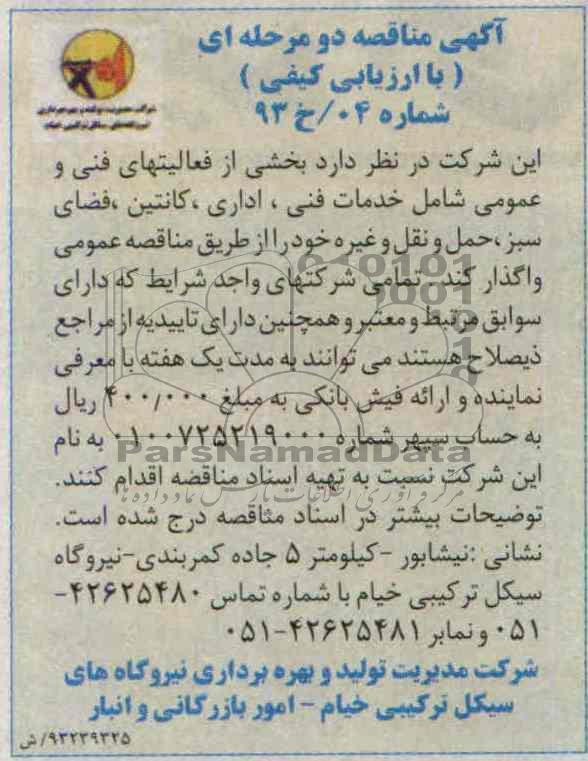 آگهی مناقصه دو مرحله ای
( با ارزیابی کیفی )
شماره ۰۴/خ ۹۳
شرکت مدیریت تولید و بهره برداری
نیروگاه‌های سیکل ترکیبی خیام
این شرکت در نظر دارد بخشی از فعالیتهای فنی و
عمومی شامل خدمات فنی ، اداری ،کانتین ،فضای
سبز ،حمل و نقل و غیره خود را از طریق مناقصه عمومی
واگذار کند . تمامی شرکتهای واجد شرایط که دارای
سوابق مرتبط و معتبر و همچنین دارای تاییدیه از مراجع
ذیصلاح هستند می توانند به مدت یک هفته با معرفی
نماینده و ارائه فیش بانکی به مبلغ ۴۰۰/۰۰۰ ریال
به حساب سپهر شماره ۰۱۰۰۷۲۵۲۱۹۰۰۰ به نام
ParsNamadData
این شرکت نسبت به تهیه اسناد مناقصه اقدام کنند.
مرکز فرآوری اطلاعات پارس نماد داده ها
توضیحات بیشتر در اسناد مناقصه درج شده است.
نشانی :نیشابور -کیلومتر ۵ جاده کمربندی-نیروگاه
سیکل ترکیبی خیام با شماره تماس ۴۲۶۲۵۴۸۰-
۰۵۱ و نمابر ۴۲۶۲۵۴۸۱-۰۵۱
شرکت مدیریت تولید و بهره برداری نیروگاه های
سیکل ترکیبی خیام - امور بازرگانی و انبار
۹۳۲۳۹۳۲۵/ش